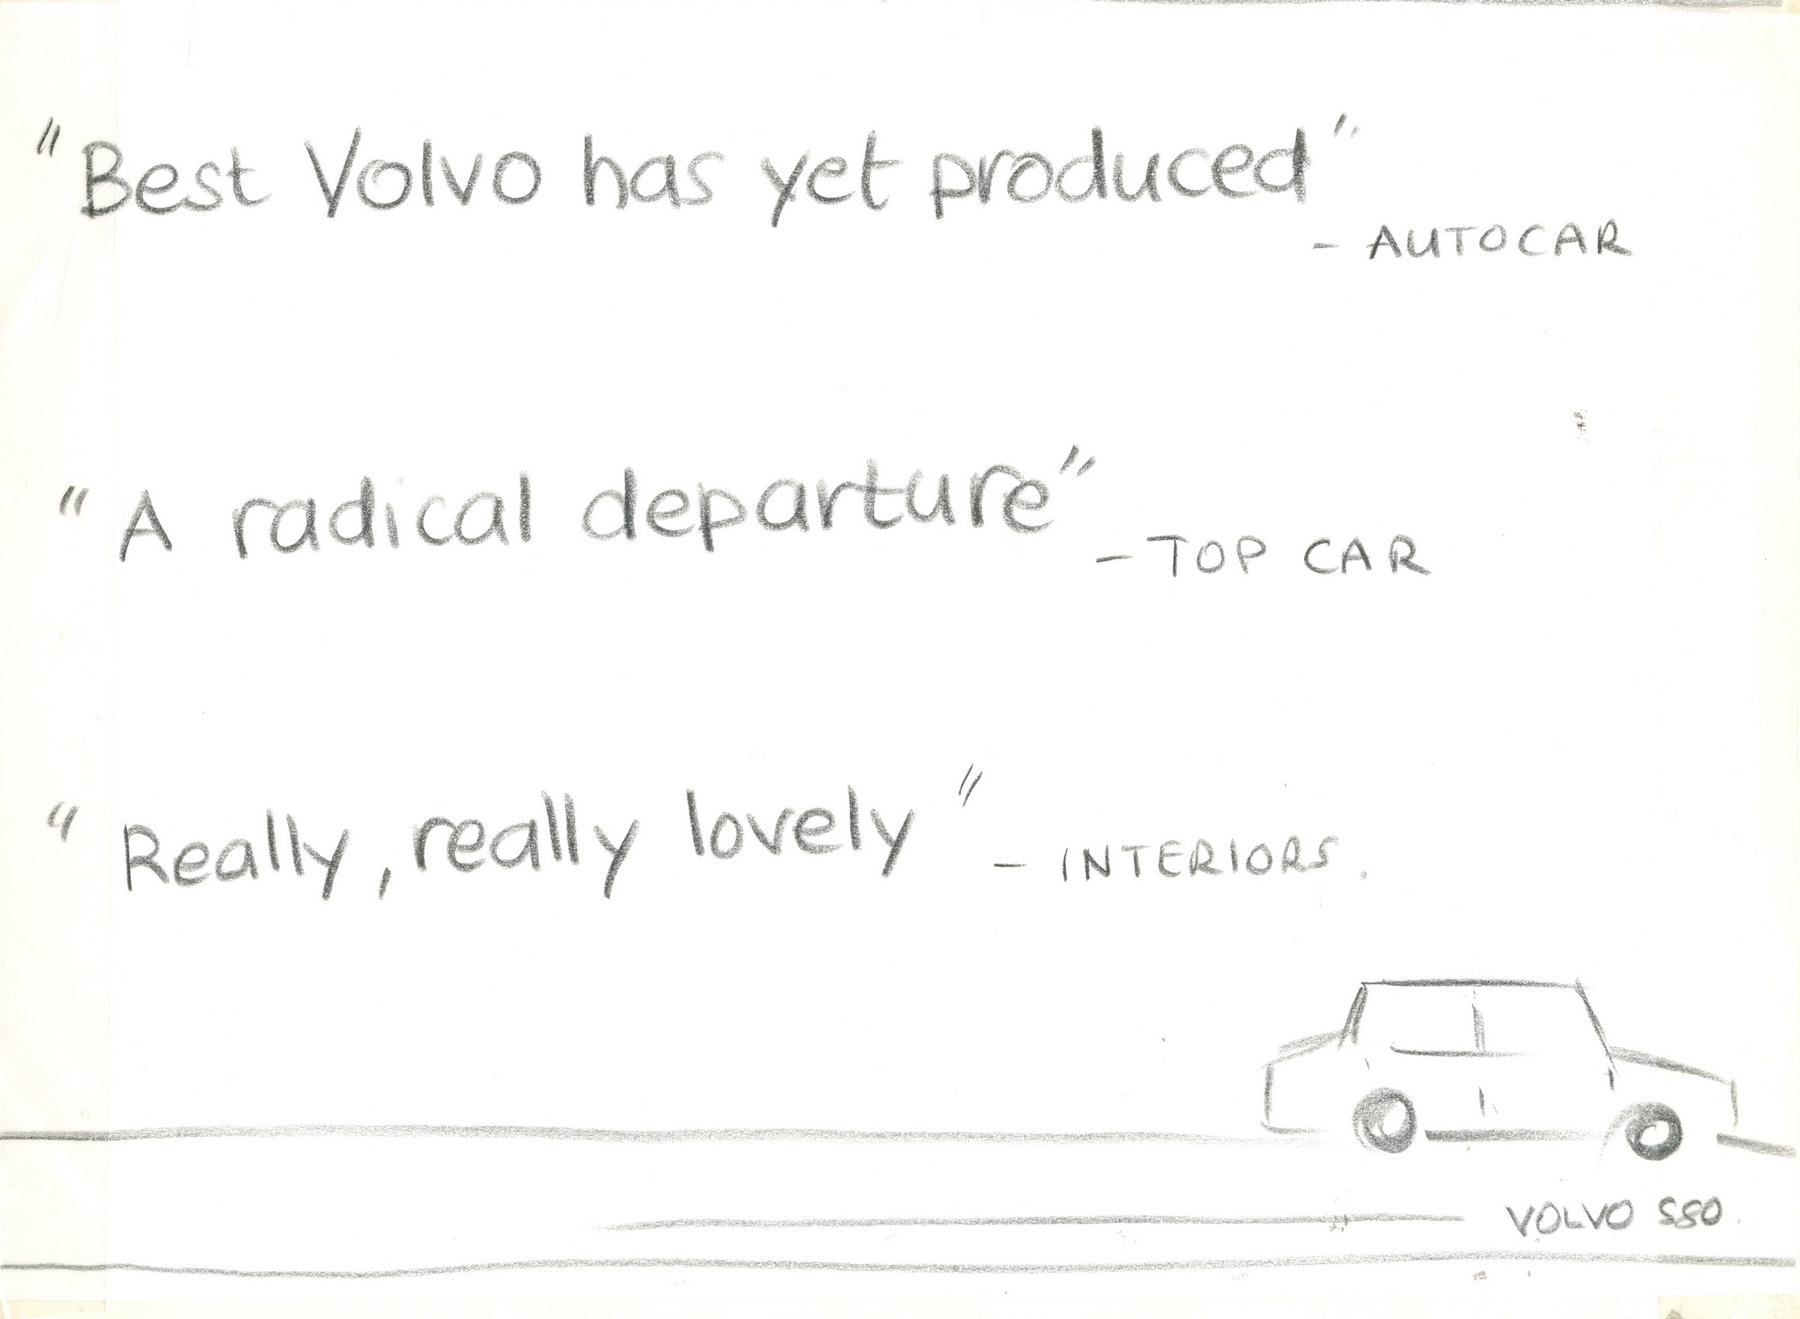 "Best Volvo has yet produced"
- AUTOCAR
"A radical departure"
- TOP CAR
"Really, really lovely"
- INTERIORS.
VOLVO S80.